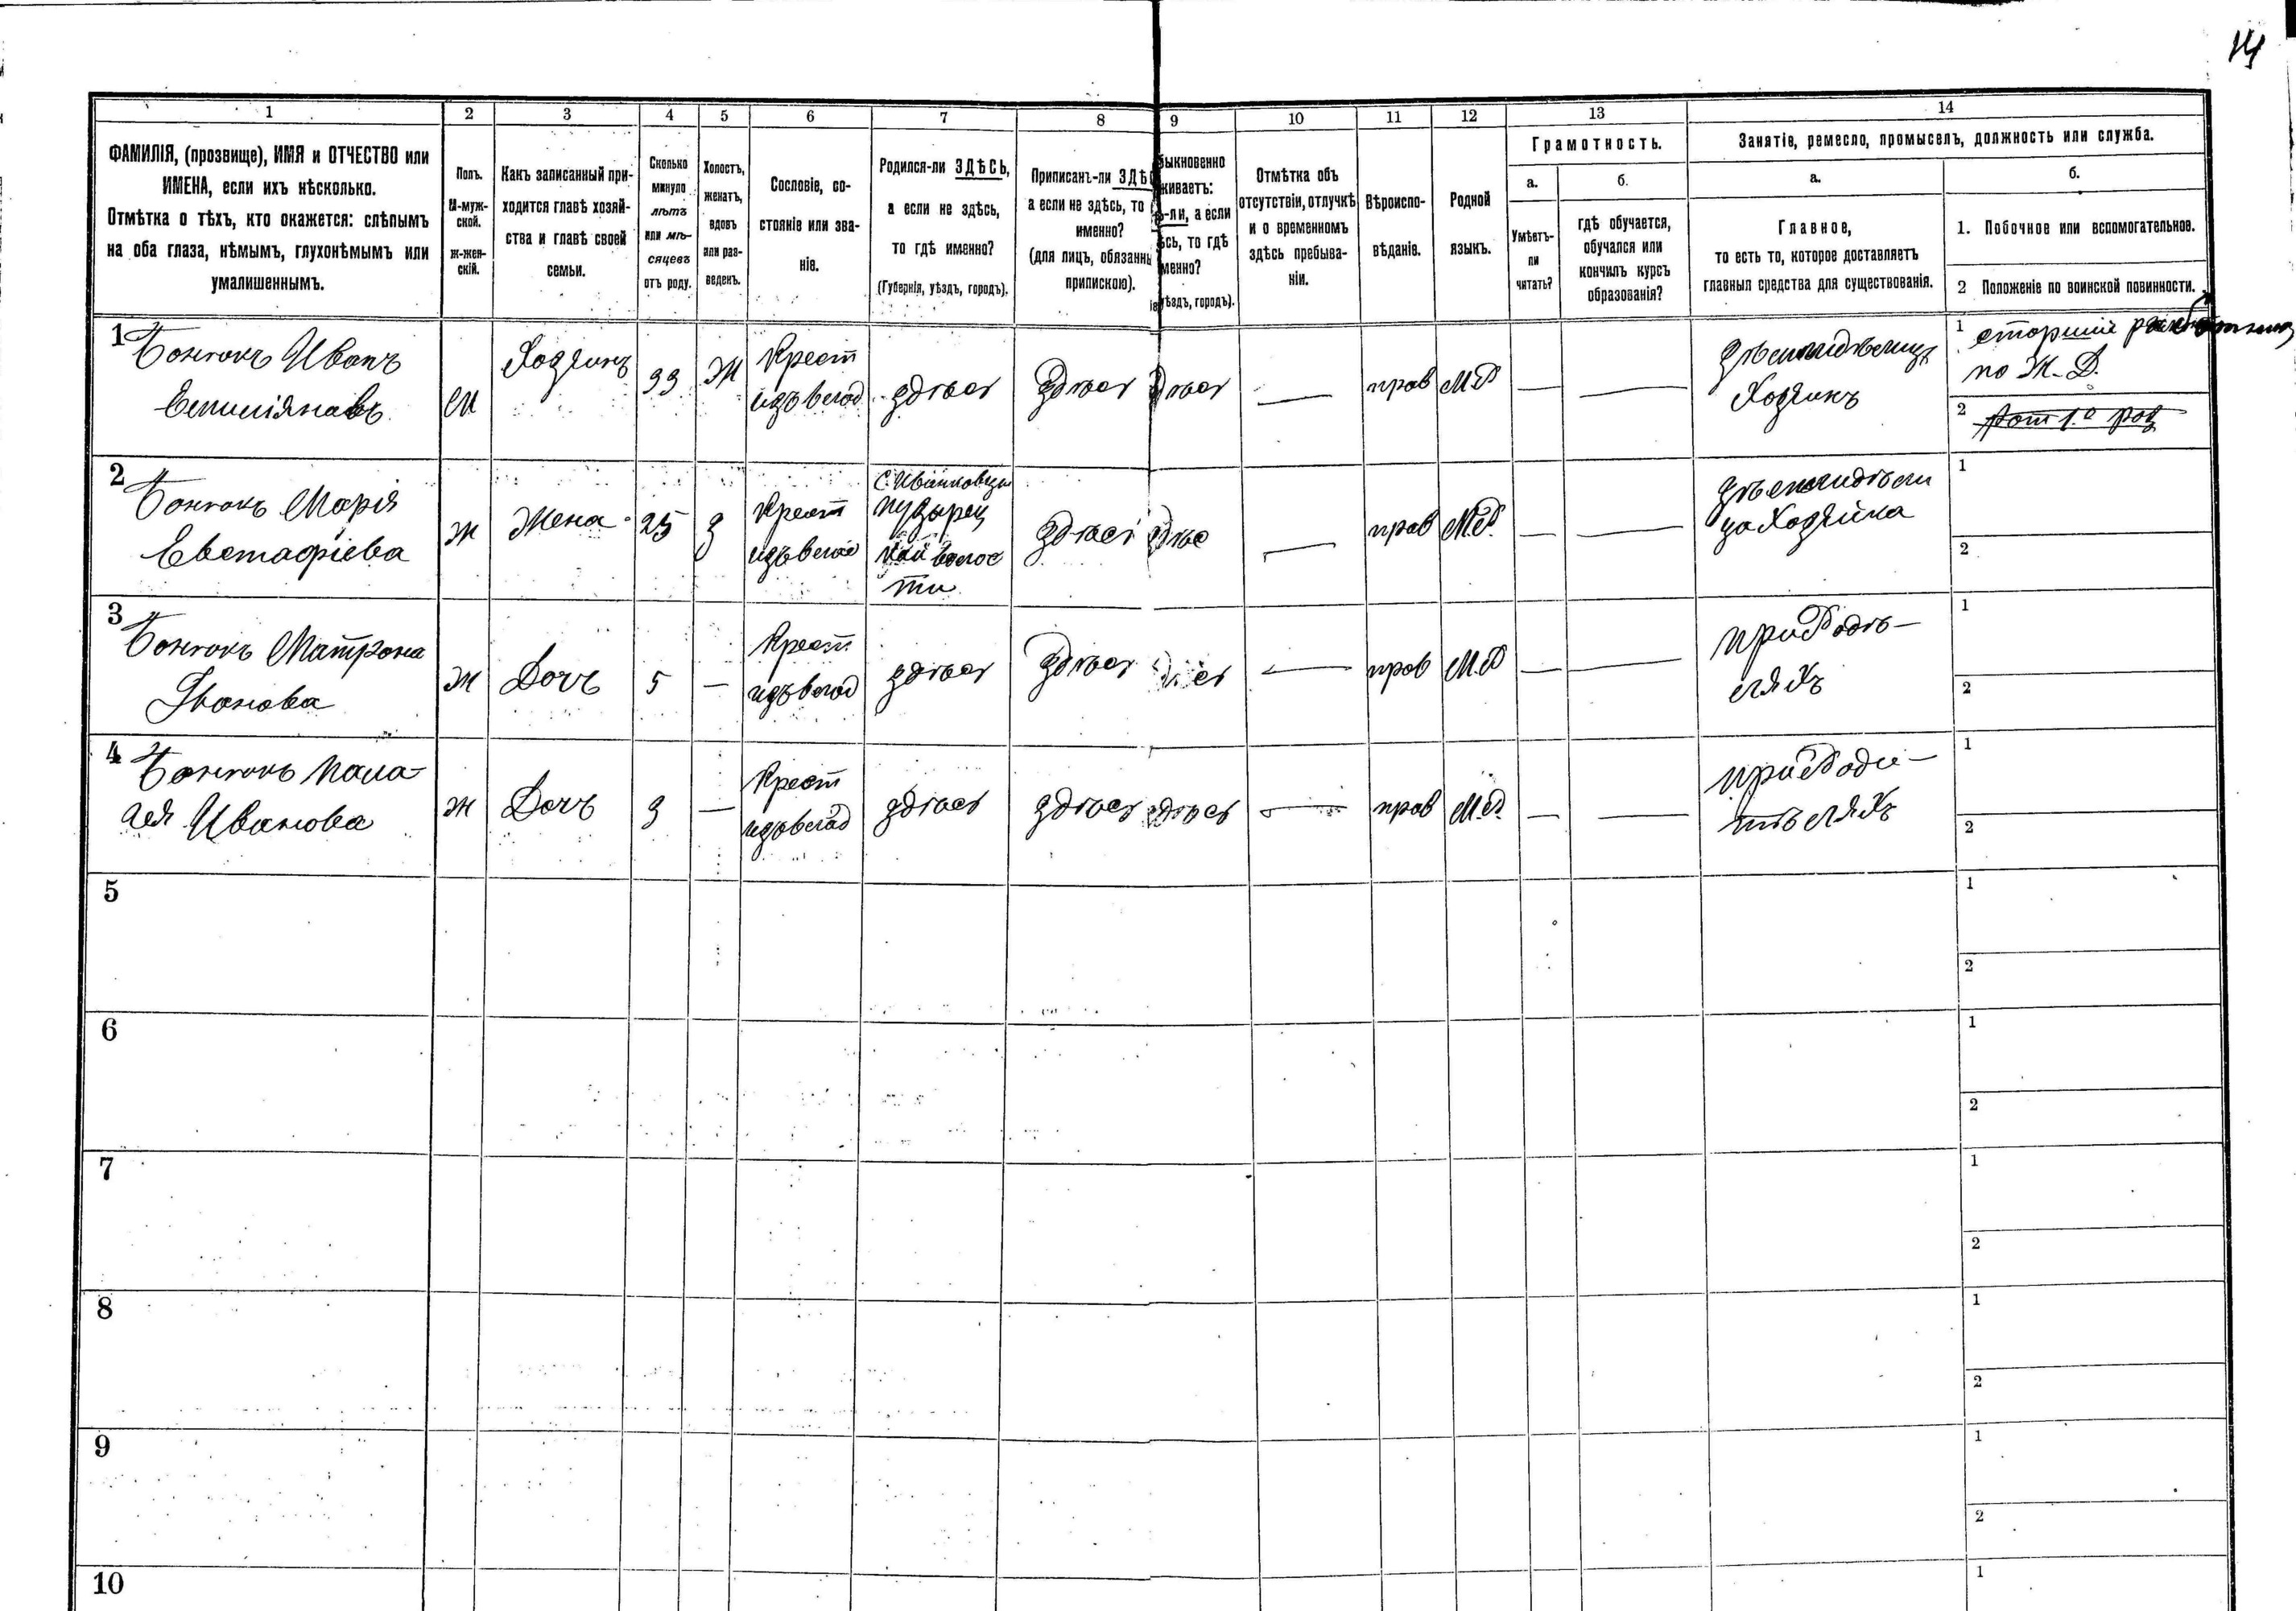 14
1 2 3 4 5 6 7 8 9 10 11 12 13 14
ФАМИЛІЯ, (прозвище), ИМЯ и ОТЧЕСТВО или
ИМЕНА, если ихъ нѣсколько.
Отмѣтка о тѣхъ, кто окажется: слѣпымъ
на оба глаза, нѣмымъ, глухонѣмымъ или
умалишеннымъ.
Полъ.
М-муж-
ской.
ж-жен-
скій.
Какъ записанный при-
ходится главѣ хозяй-
ства и главѣ своей
семьи.
Сколько
минуло
лѣтъ
или мѣ-
сяцевъ
отъ роду.
Холостъ,
женатъ,
вдовъ
или раз-
веденъ.
Сословіе, со-
стояніе или зва-
ніе.
Родился-ли ЗДѢСЬ,
а если не здѣсь,
то гдѣ именно?
(Губернія, уѣздъ, городъ).
Приписанъ-ли ЗДѢ
а если не здѣсь, то
именно?
(для лицъ, обязанны
припискою).
быкновенно
живаетъ:
ѣ-ли, а если
ѣсь, то гдѣ
менно?
уѣздъ, городъ).
Отмѣтка объ
отсутствіи, отлучкѣ
и о временномъ
здѣсь пребыва-
ніи.
Вѣроиспо-
вѣданіе.
Родной
языкъ.
Грамотность.
а.
Умѣетъ-
ли
читать?
б.
гдѣ обучается,
обучался или
кончилъ курсъ
образованія?
Занятіе, ремесло, промыселъ, должность или служба.
а.
Главное,
то есть то, которое доставляетъ
главныя средства для существованія.
б.
1. Побочное или вспомогательное.
2 Положеніе по воинской повинности.
1
Иванъ
М
Хозяинъ
33
Ж
Крест
здѣсь
здѣсь
здѣсь
—
прав
М.Р
—
—
Хозяинъ
1 старшій
по Ж-Д.
2
2
Марія
Евстафіева
Ж
Жена
25
З
Крест
С. Иванковцы
волос
ти
здѣсь
—
прав
М.Р.
—
—
Хозяйка
1
2
3
Матрона
Иванова
Ж
Дочь
5
—
Крест
здѣсь
здѣсь
—
прав
М.Р
—
—
1
2
4
Пала-
гея Иванова
Ж
Дочь
3
—
Крест
здѣсь
здѣсь
здѣсь
—
прав
М.Р.
—
—
при Роди-
теляхъ
1
2
5
1
2
6
1
2
7
1
2
8
1
2
9
1
2
10
1